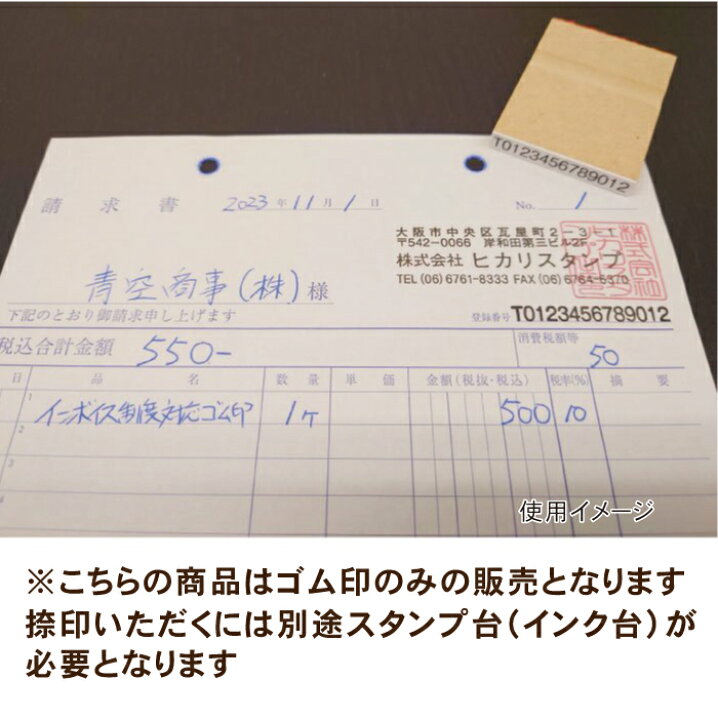 T0123456789012
請求書 2023年11月1日 No. 1
大阪市中央区瓦屋町2-3-
〒542-0066 岸和田第三ビル2F
株式会社 ヒカリスタンプ
TEL(06)6761-8333 FAX(06)6764-6370
青空商事(株)様
下記のとおり御請求申し上げます
登録番号 T0123456789012
税込合計金額 550-
消費税額等 50
日 品名 数量 単価 金額(税抜・税込) 税率(%) 摘要
1 インボイス制度対応ゴム印 1ケ 500 10
2
3
4
使用イメージ
※こちらの商品はゴム印のみの販売となります
捺印いただくには別途スタンプ台(インク台)が
必要となります